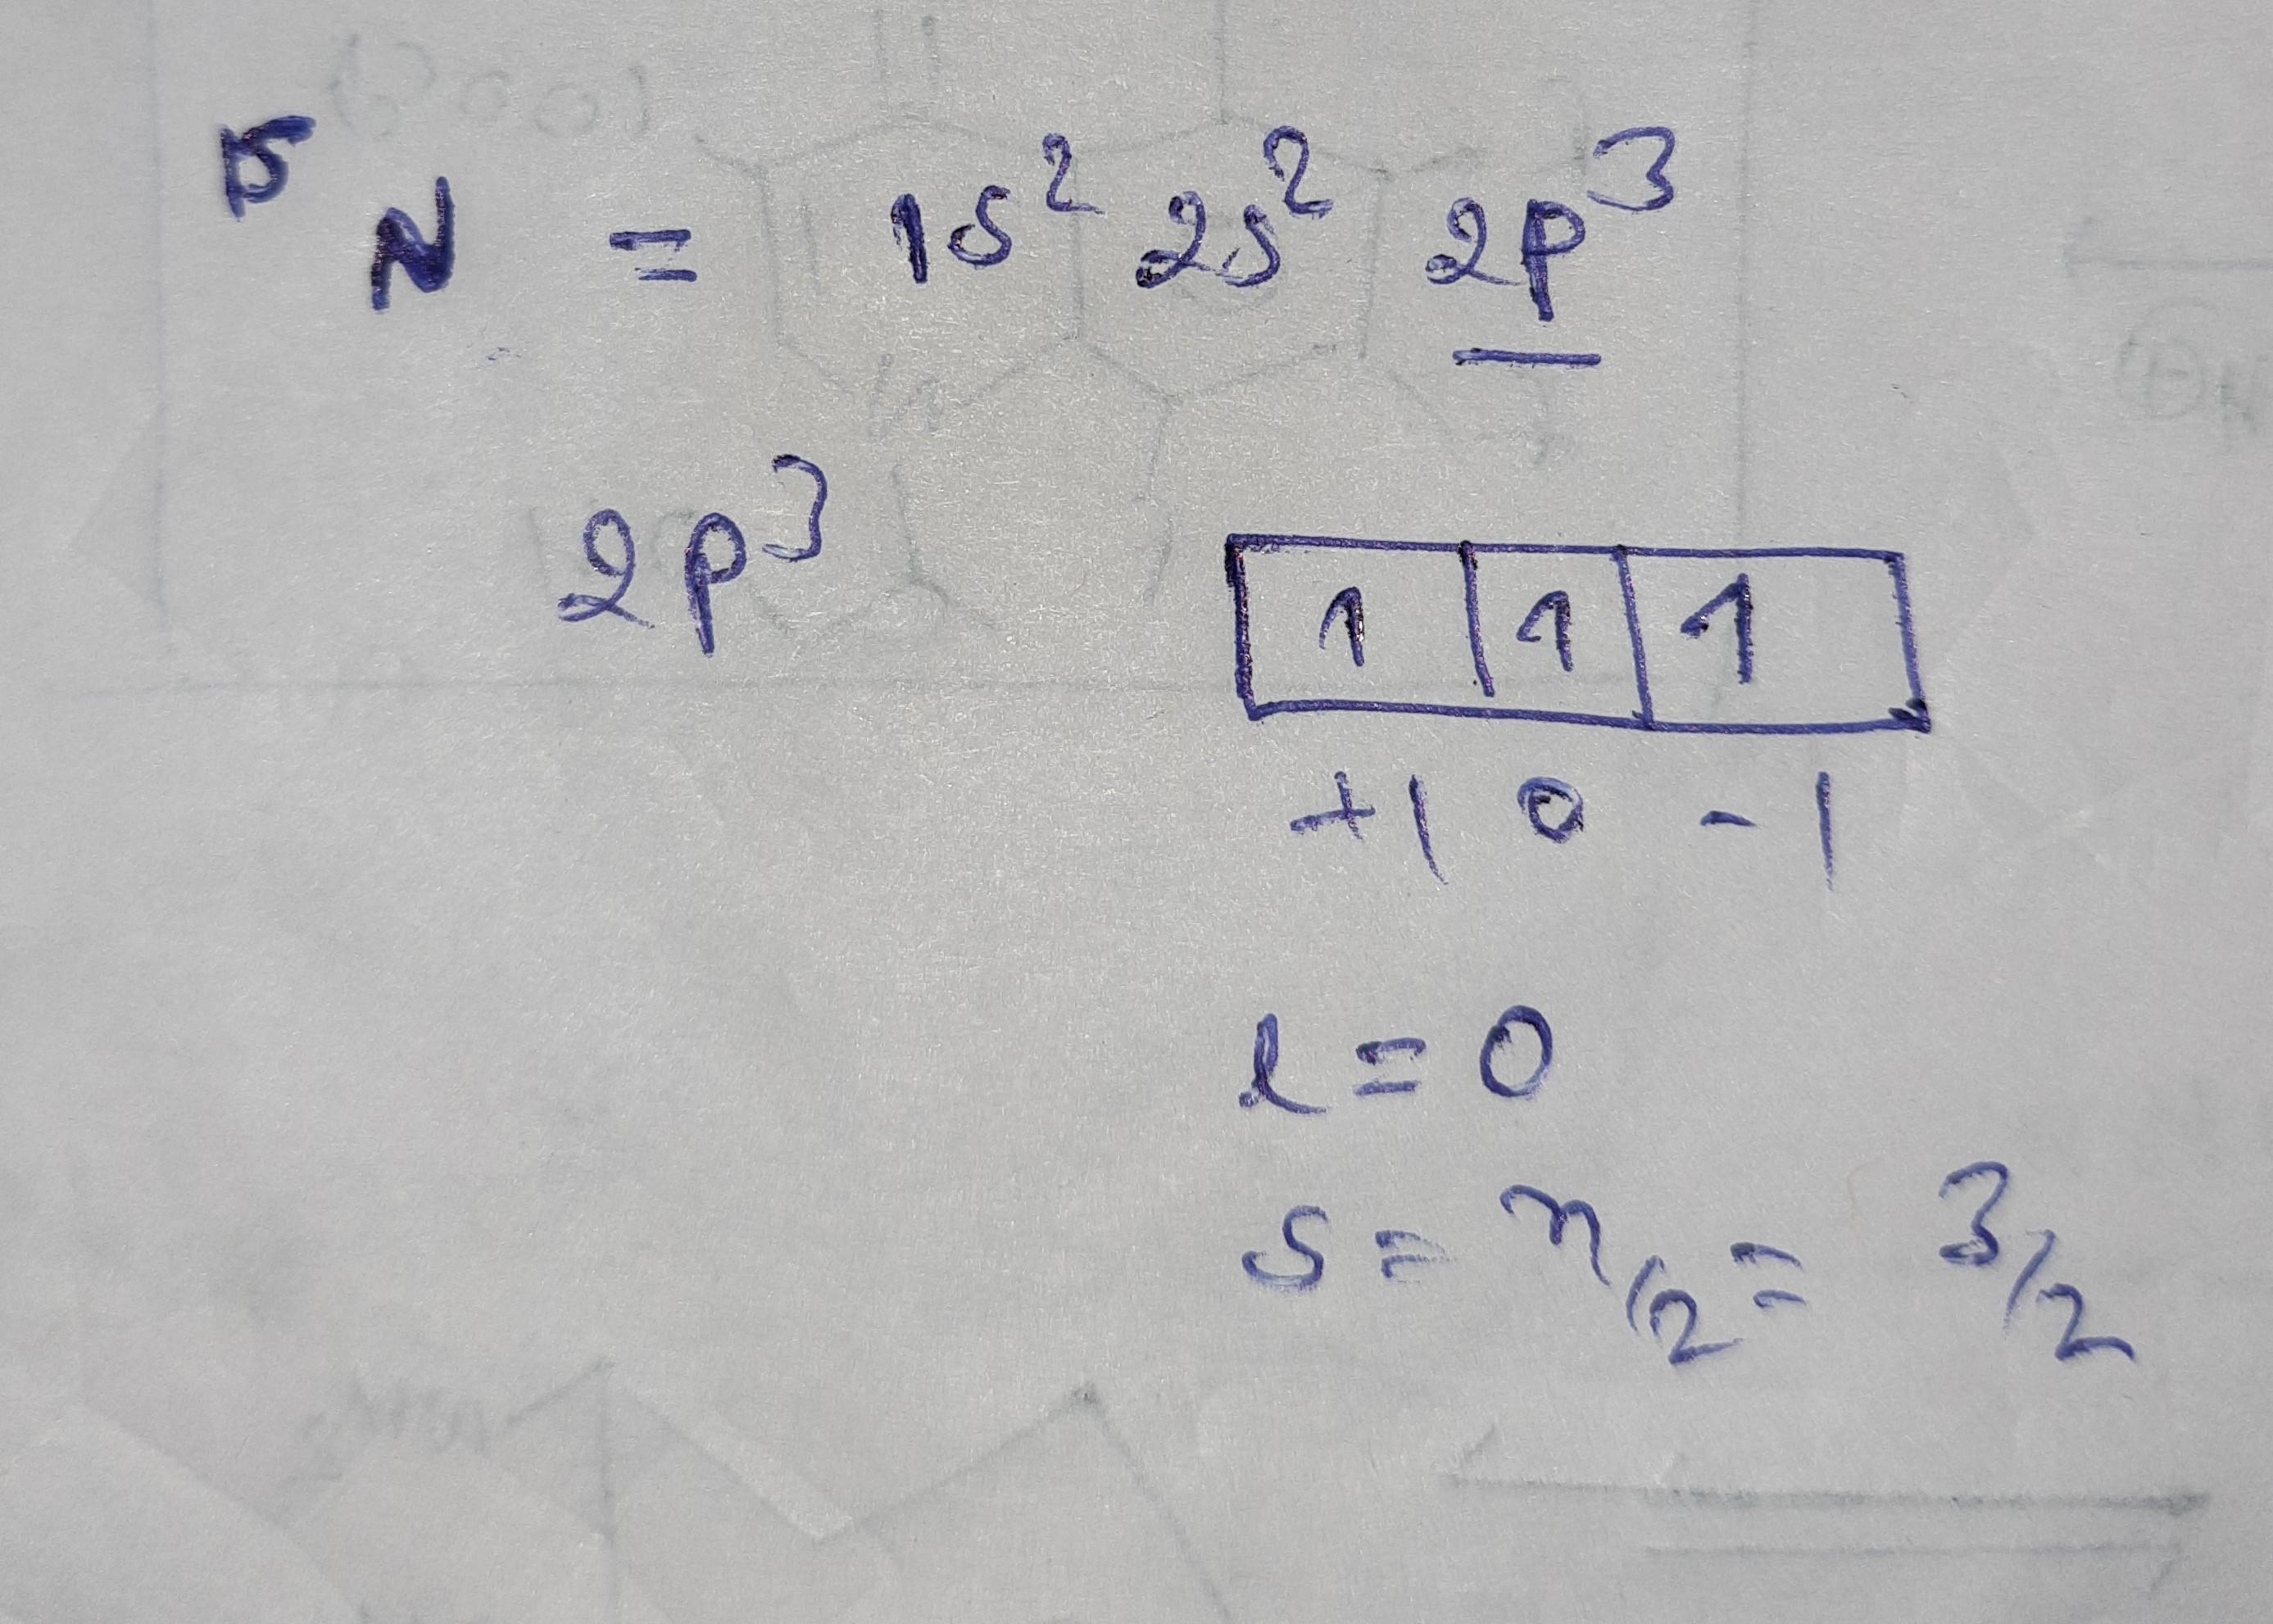 ¹⁵N = 1s² 2s² 2p³
2p³
1 1 1
+1 0 -1
l = 0
s = n/2 = 3/2